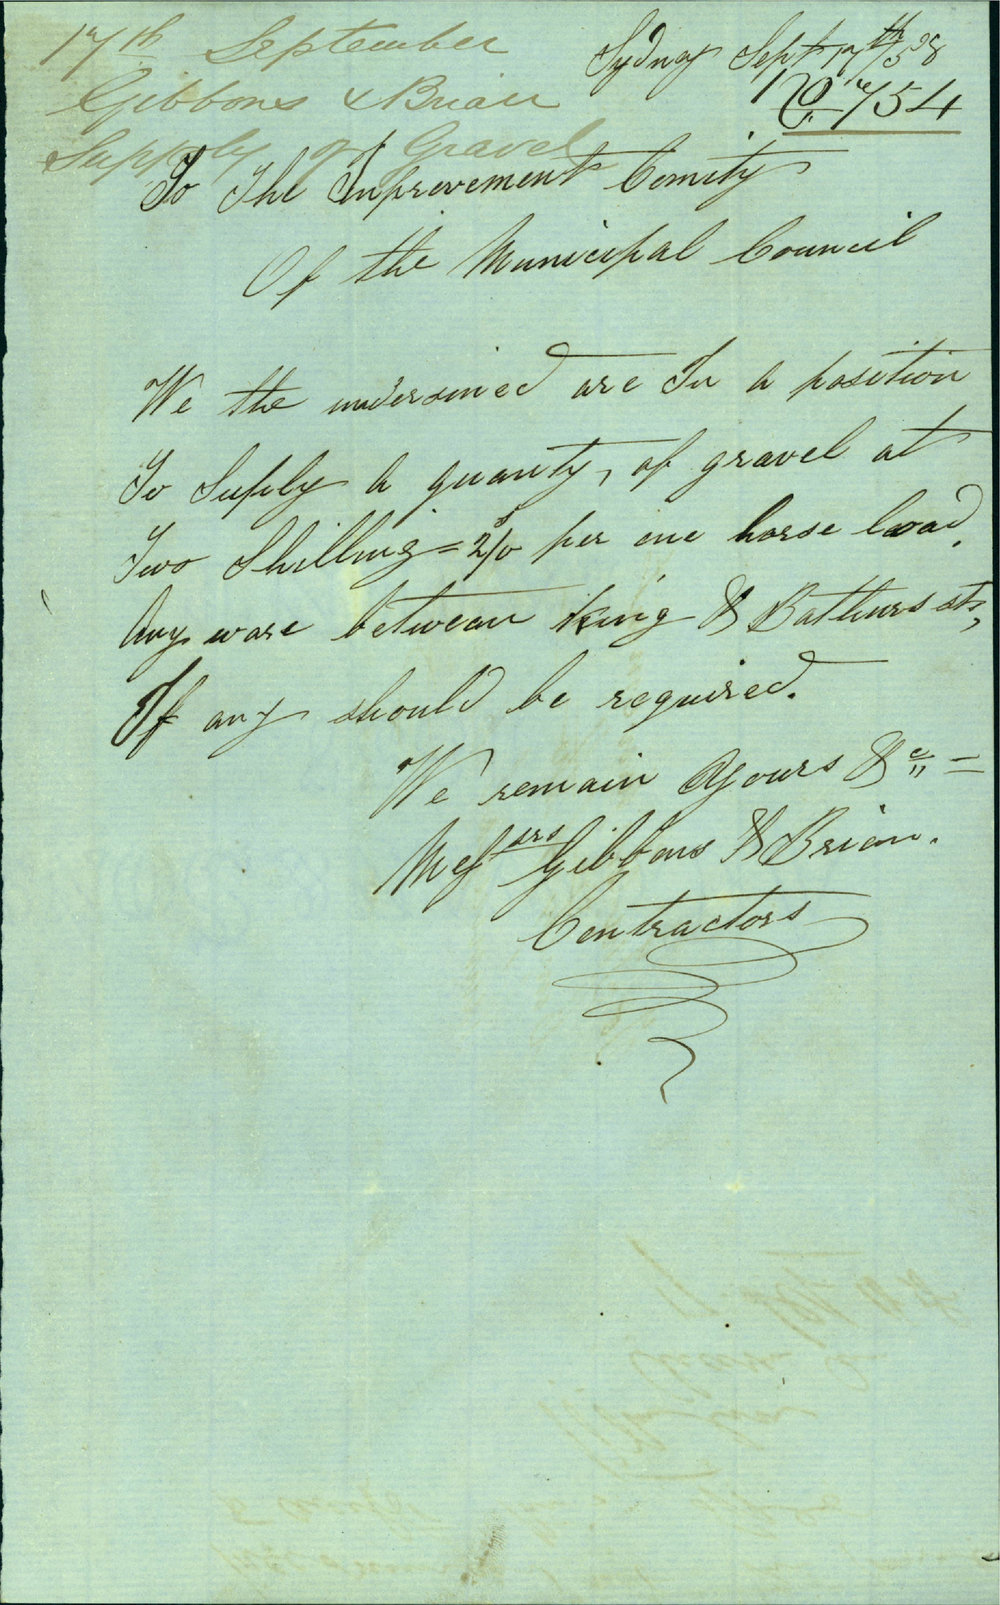 17th September
Gibbons & Brian
Supply of Gravel
Sydney Sept 17th/58
No 754
To The Improvement Comity
Of the Municipal Council
We the undersined are In a position
To Supply a quanty, of gravel at
Two Shilling = 2/0 per one horse load.
Any ware between King & Bathurs sts,
If any should be required.
We remain Yours &c =
Messrs Gibbons & Brian.
Contractors